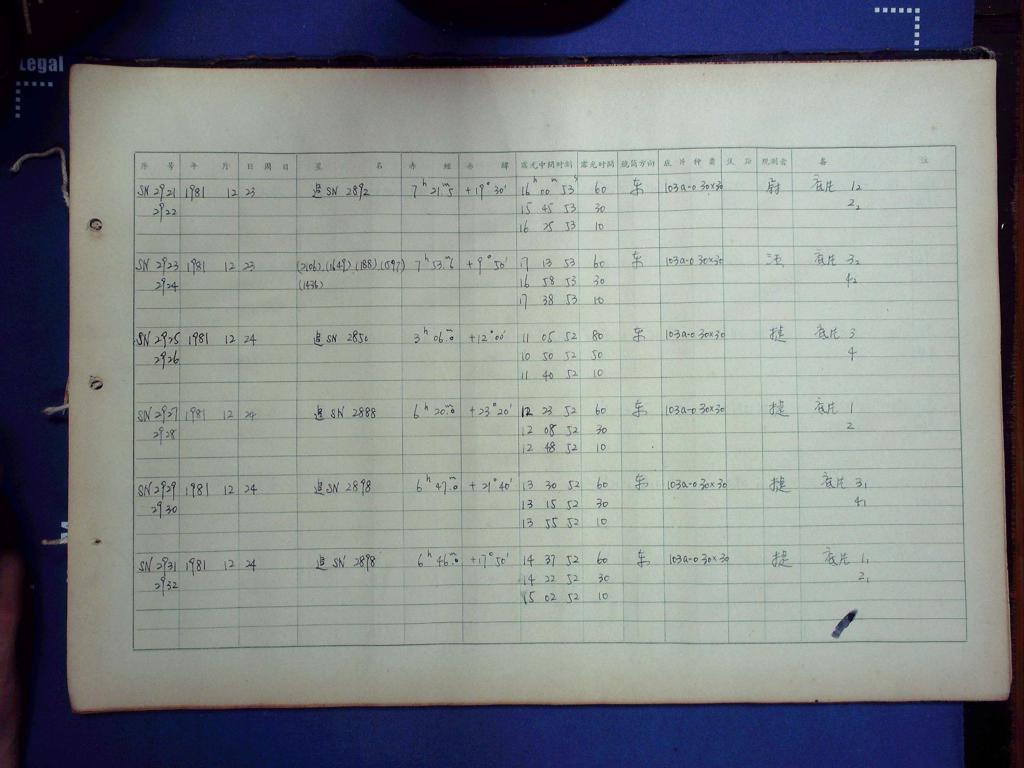 Legal
序 号 年 月 日 周 日 星 名 赤 經 赤 緯 露光中間时刻 露光时間 鏡筒方向 底 片 种 类 观測者 备 注
SN 2921 1981 12 23 追SN 2892 7ʰ 21ᵐ.5 +19°30′ 16ʰ 00ᵐ 53ˢ 60 东 103a-0 30×30 尉 底片 1₂
2922 15 45 53 30 2₂
16 25 53 10
SN 2923 1981 12 23 (2106).(1649).(188).(1597) 7ʰ 53ᵐ.6 +9°50′ 17 13 53 60 东 103a-0 30×30 汪 底片 3₂
2924 (1436) 16 58 53 30 4₂
17 38 53 10
SN 2925 1981 12 24 追SN 2850 3ʰ 06ᵐ.0 +12°00′ 11 05 52 80 东 103a-0 30×30 捷 底片 3
2926 10 50 52 50 4
11 40 52 10
SN 2927 1981 12 24 追 SN 2888 6ʰ 20ᵐ.0 +23°20′ 12 23 52 60 东 103a-0 30×30 捷 底片 1
2928 12 08 52 30 2
12 48 52 10
SN 2929 1981 12 24 追SN 2898 6ʰ 47ᵐ.0 +21°40′ 13 30 52 60 东 103a-0 30×30 捷 底片 3₁
2930 13 15 52 30 4₁
13 55 52 10
SN 2931 1981 12 24 追 SN 2898 6ʰ 46ᵐ.0 +17°50′ 14 37 52 60 东 103a-0 30×30 捷 底片 1₁
2932 14 22 52 30 2₁
15 02 52 10